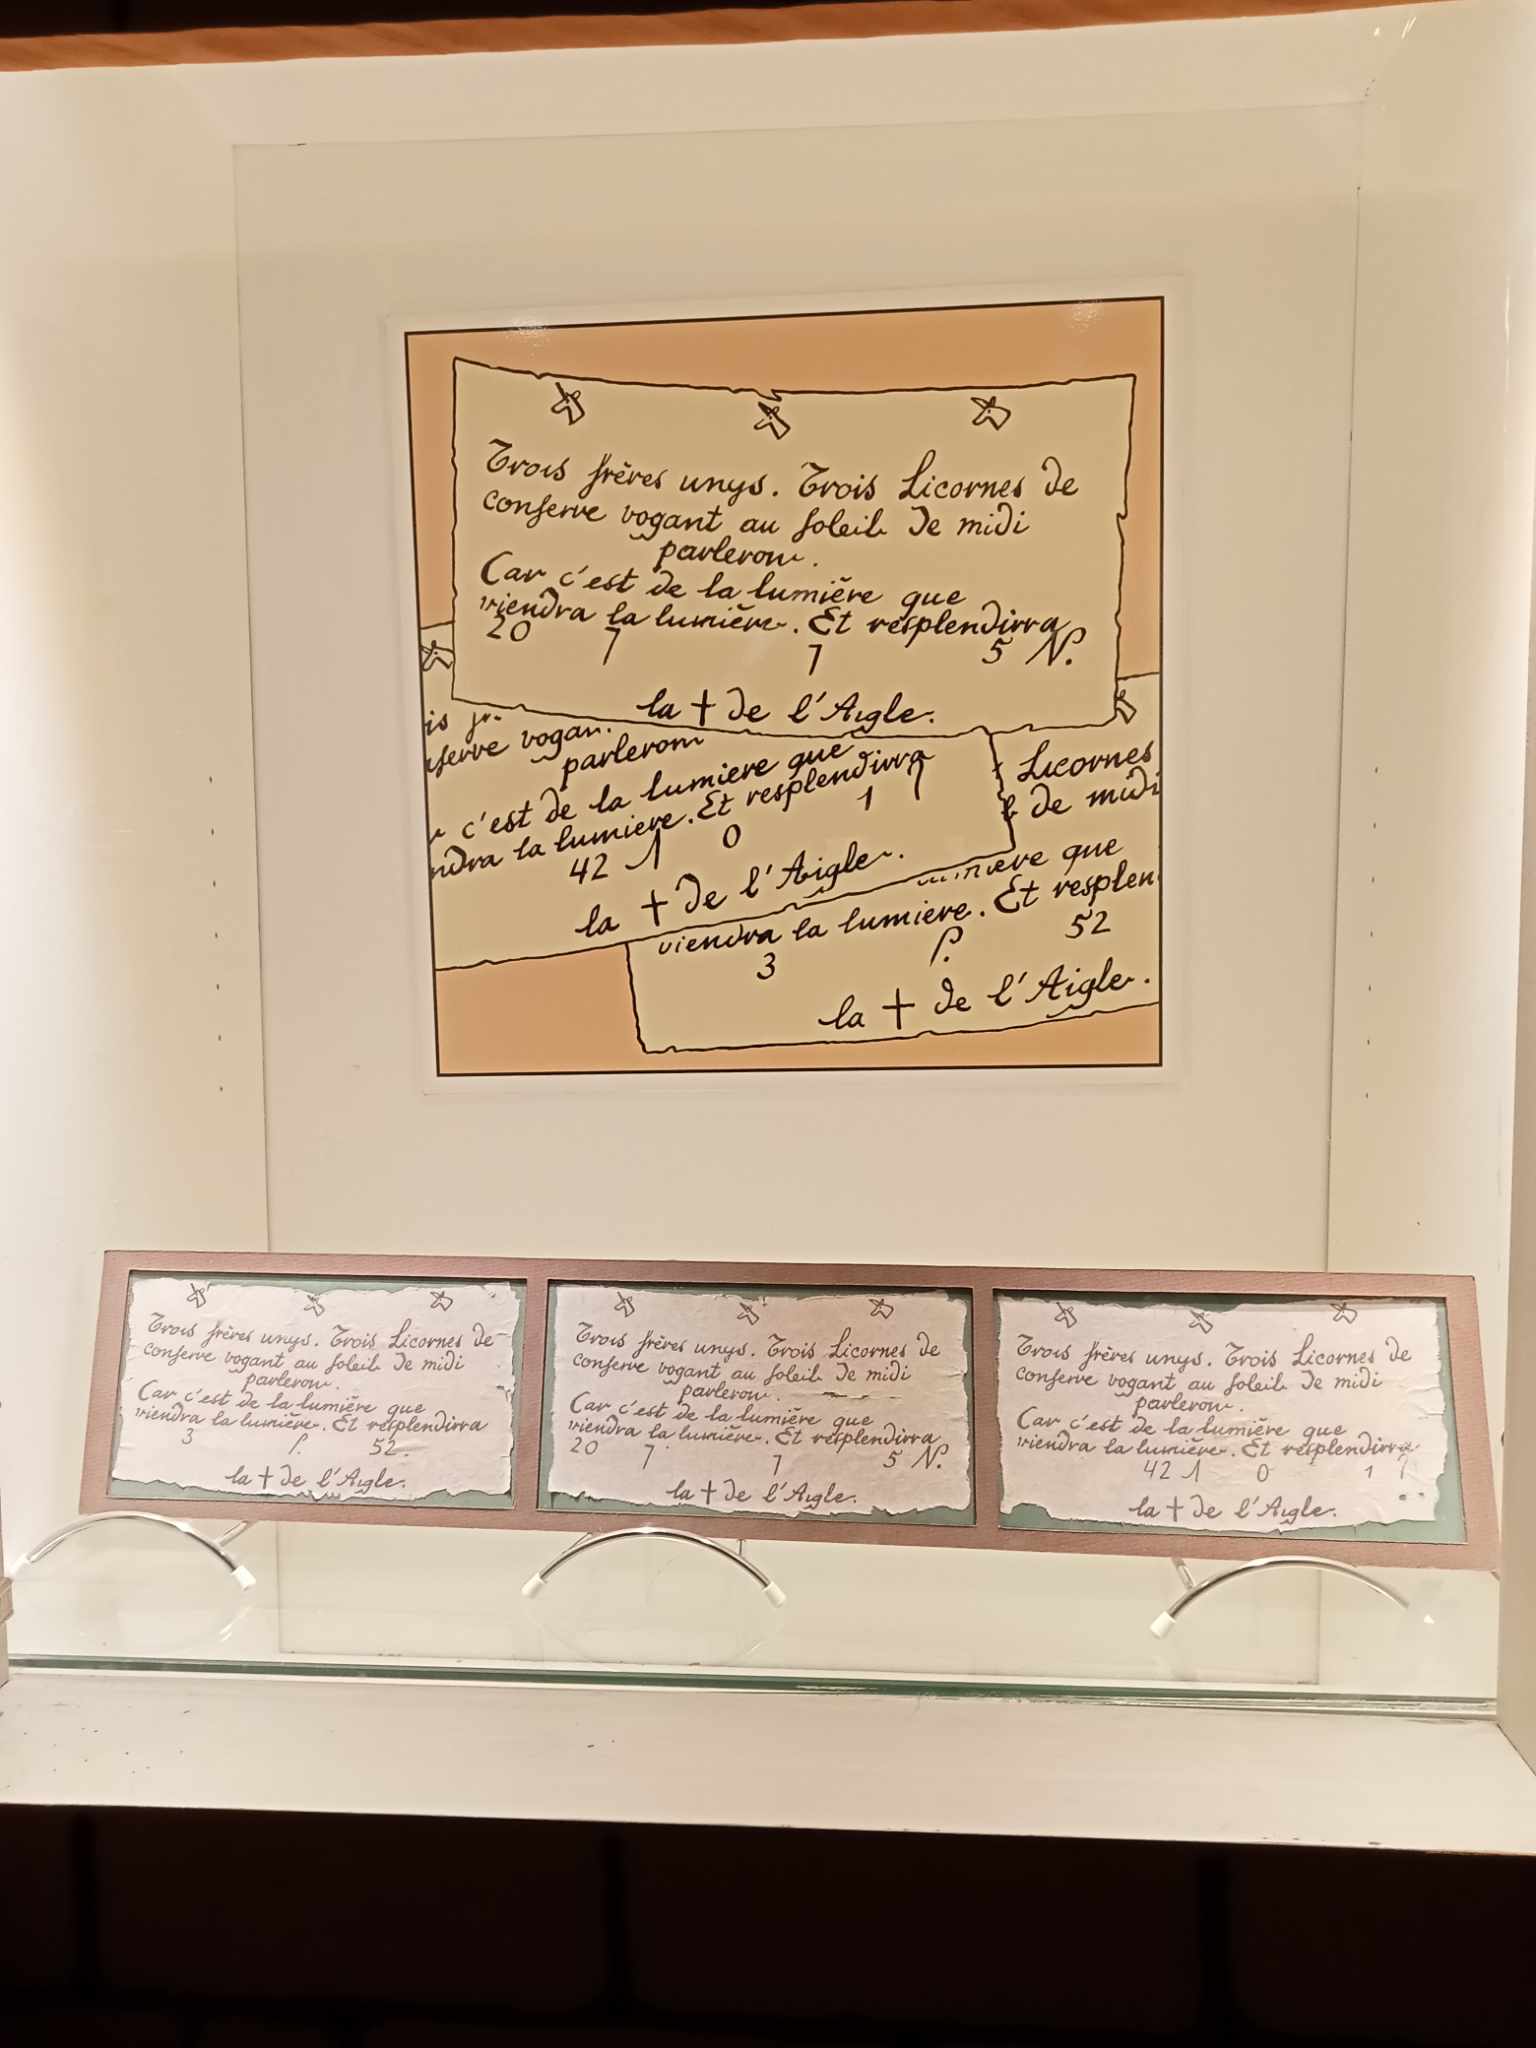 Trois frères unys. Trois Licornes de
conserve vogant au soleil de midi
parleront.
Car c'est de la lumière que
viendra la lumière. Et resplendirra
20 7 7 5 N.
la † de l'Aigle.
vogan.
parleront
c'est de la lumiere que
la lumiere. Et resplendirra
42 1 0 1
la † de l'Aigle.
Licornes
de midi
que
viendra la lumiere. Et resplen
3 52
la † de l'Aigle.
Trois frères unys. Trois Licornes de
conserve vogant au soleil de midi
parleront.
Car c'est de la lumière que
viendra la lumière. Et resplendirra
3 52.
la † de l'Aigle.
Trois frères unys. Trois Licornes de
conserve vogant au soleil de midi
parleront.
Car c'est de la lumière que
viendra la lumière. Et resplendirra
20 7 7 5 N.
la † de l'Aigle.
Trois frères unys. Trois Licornes de
conserve vogant au soleil de midi
parleront.
Car c'est de la lumière que
viendra la lumière. Et resplendirra
42 1 0 1
la † de l'Aigle.